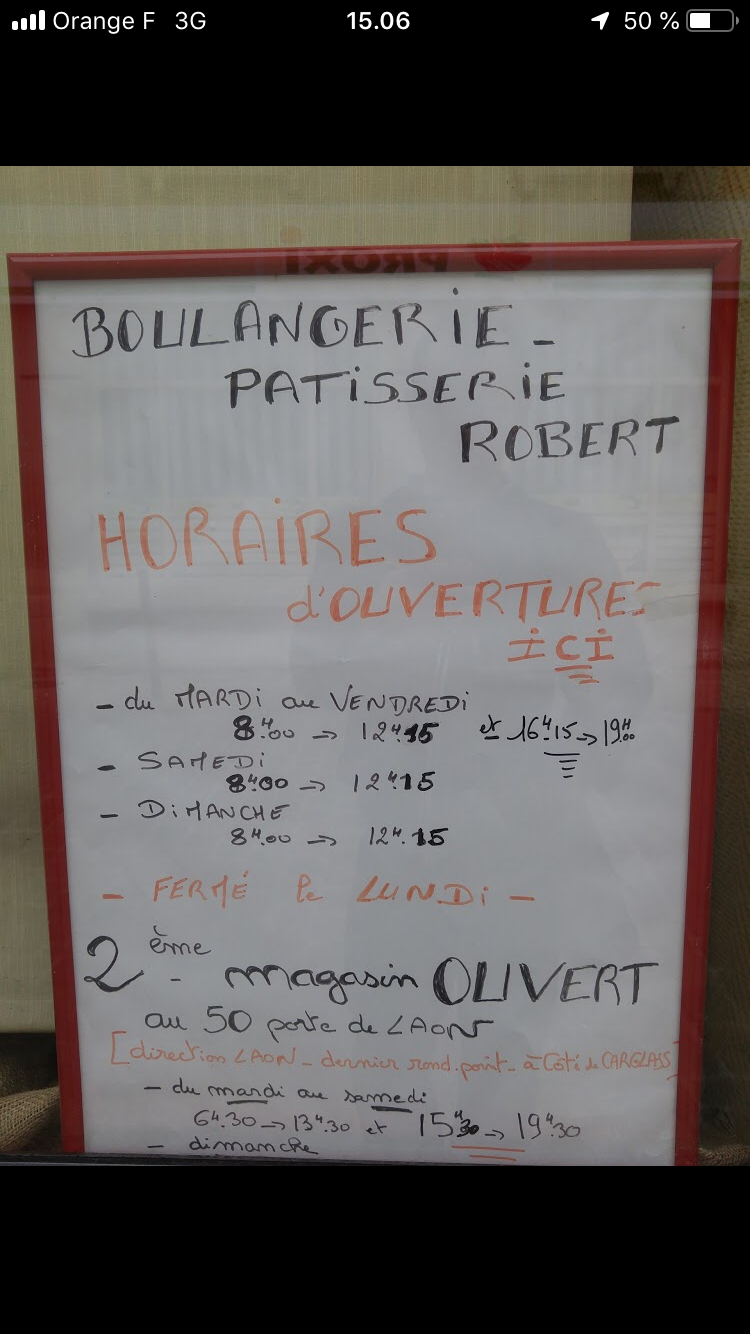 Orange F 3G 15.06 50 %
PROXI
BOULANGERiE -
PATiSSERiE
ROBERT
HORAiRES
d'OUVERTURES
iCi
- du MARDi au VENDREDi
8H00 → 12H15 et 16H15 → 19H00
- SAMEDi
8H00 → 12H15
- DiMANCHE
8H.00 → 12H.15
- FERMÉ le LUNDi -
2ème - magasin OUVERT
au 50 porte de LAON
[direction LAON - dernier rond.point - à Côté de CARGLASS]
- du mardi au samedi
6H.30 → 13H.30 et 15H30 → 19H30
- dimanche